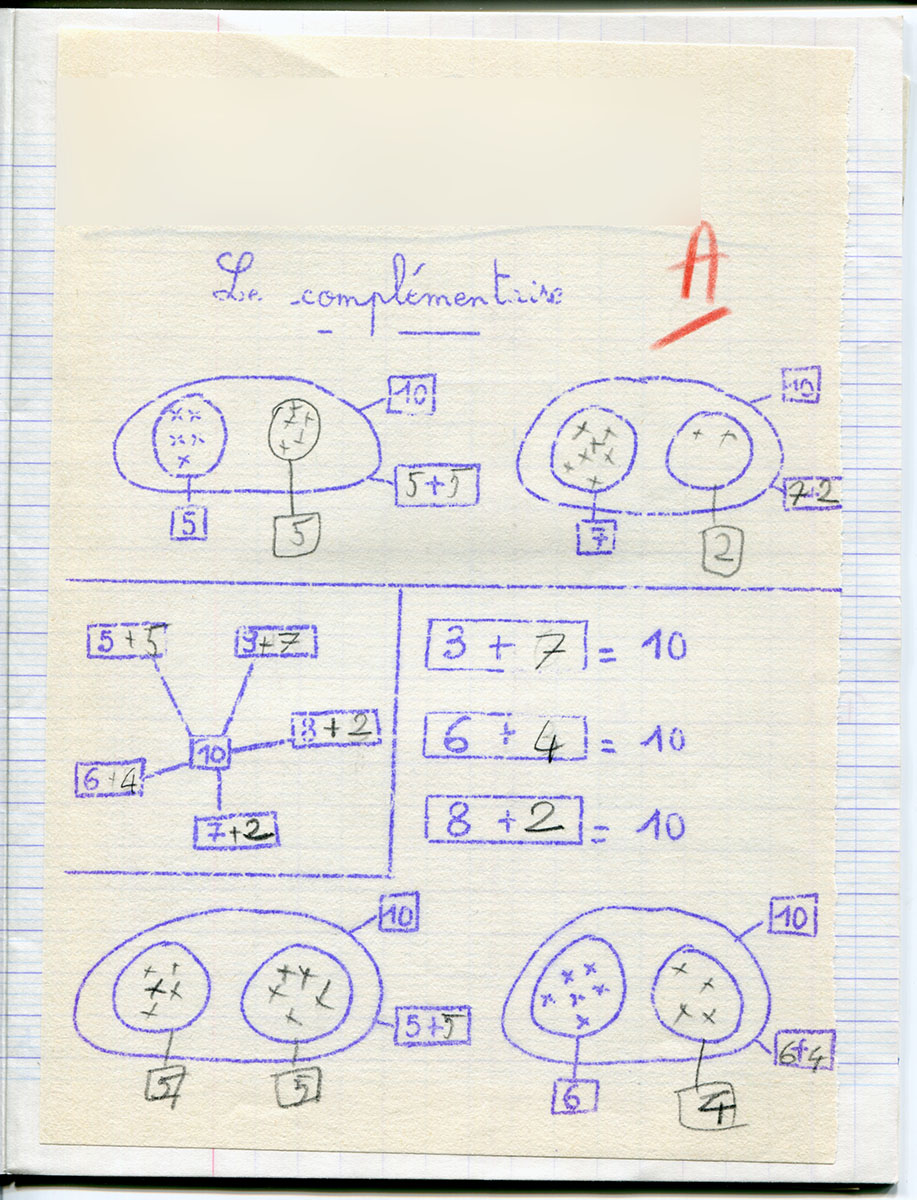 A
Le complémentaire
10
5+5
5
5
10
7+2
7
2
5+5
3+7
8+2
10
6+4
7+2
3 + 7 = 10
6 + 4 = 10
8 + 2 = 10
10
5+5
5
5
10
6+4
6
4